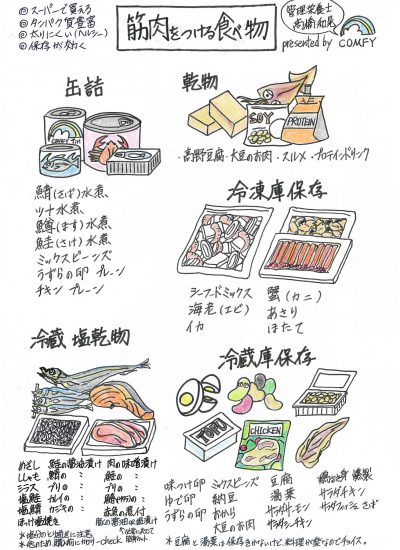 ◎スーパーで買える
◎タンパク質豊富
◎太りにくい(ヘルシー)
◎保存が効く
筋肉をつける食べ物
管理栄養士
presented by COMFY
缶詰
鯖(さば)水煮
ツナ水煮
鱒(ます)水煮
鮭(さけ)水煮
ミックスビーンズ
うずらの卵 プレーン
チキン プレーン
乾物
SOY
PROTEIN
・高野豆腐・大豆のお肉・スルメ・プロテインドリンク
冷凍庫保存
シーフードミックス
海老(エビ)
イカ
蟹(カニ)
あさり
ほたて
冷蔵 塩乾物
めざし
ししゃも
シラス
塩鮭
塩鯖
ほっけ塩焼き
鮭の醤油漬け
鯖の 〃
ブリの 〃
カレイの 〃
カジキの 〃
肉の味噌漬け
鮭の 〃
ブリの 〃
赤魚の煮付
冷蔵庫保存
TOFU
CHICKEN
味つけ卵
ゆで卵
うずらの卵
ミックスビーンズ
納豆
おから
大豆のお肉
豆腐
湯葉
サラダチキン
サラダフィッシュ さば
*豆腐と湯葉は保存きかないけど料理が楽なのでチョイス。